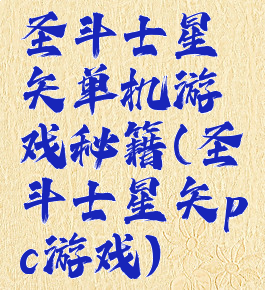 圣斗士星
矢单机游
戏秘籍(圣
斗士星矢p
c游戏)